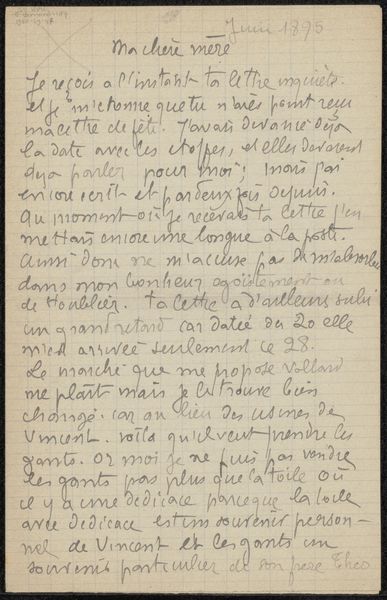 Juin 1895
Ma chère mère
Je reçois à l'instant ta lettre inquiète
et je m'étonne que tu n'aies point reçu
ma lettre de fête. J'avais devancé déjà
la date avec les étoffes, et elles devaient
déja parler pour moi; mais j'ai
encore écrit et par deux fois depuis.
Au moment où je recevais ta lettre j'en
mettais encore une longue à la poste.
Ainsi donc ne m'accuse pas de m'absorber
dans mon bonheur egoïstement ou
de t'oublier. Ta lettre a d'ailleurs subi
un grand retard car datée du 20 elle
m'est arrivée seulement le 28.
Le marché que me propose Vollard
me plaît mais je le trouve bien
changé. car au lieu des usines de
Vincent. voilà qu'il veut prendre les
gants. Or moi je ne puis pas vendre
les gants pas plus que la toile où
il y a une dédicace parceque la toile
avec dédicace est un souvenir person-
nel de Vincent et les gants un
souvenir particulier de son frère Theo